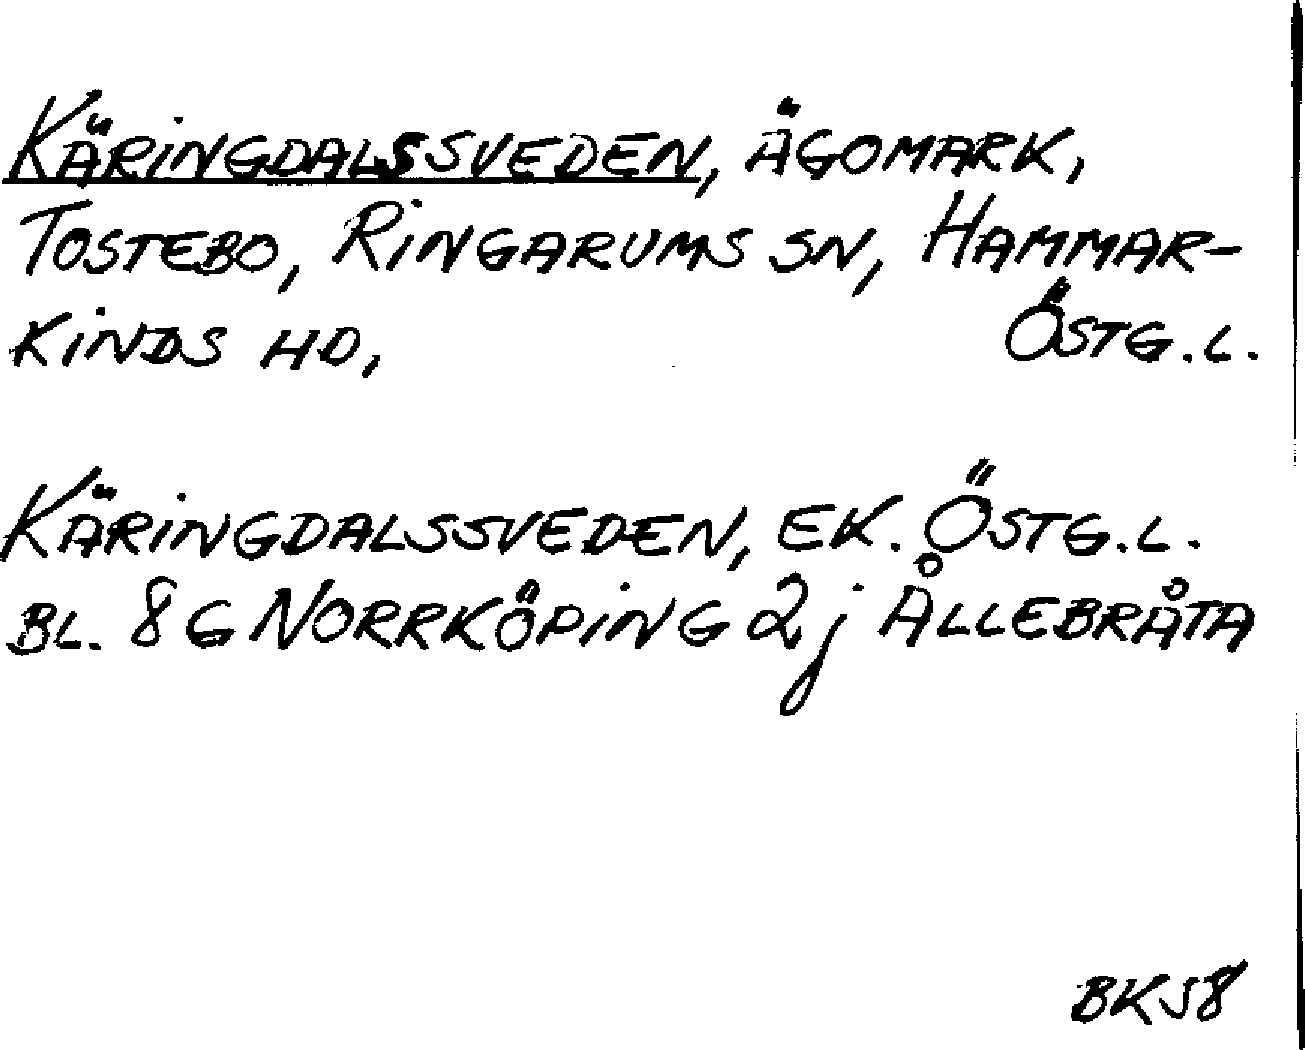 KÄRINGDALSSVEDEN, ÄGOMARK,
TOSTEBO, RINGARUMS SN, HAMMAR-
KINDS HD, ÖSTG.L.
KÄRINGDALSSVEDEN, EK. ÖSTG.L.
BL. 8G NORRKÖPING 2j ÅLLEBRÅTA
BK58